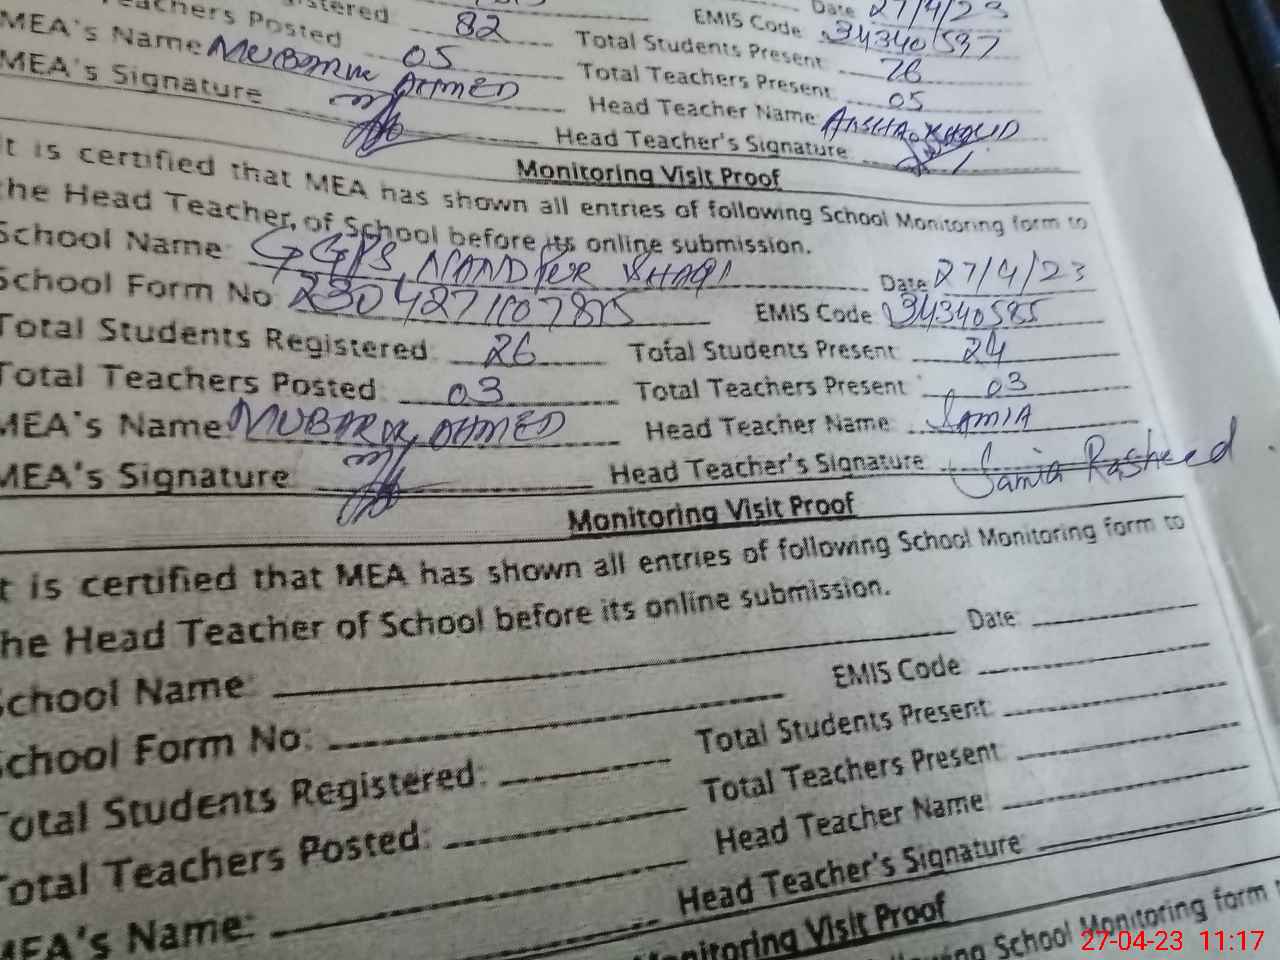 Date 27/4/23
stered 82 EMIS Code 34340597
eachers Posted 05 Total Students Present 76
MEA's Name MUBARAK AHMED Total Teachers Present 05
MEA's Signature Head Teacher Name
Head Teacher's Signature
Monitoring Visit Proof
t is certified that MEA has shown all entries of following School Monitoring form to
he Head Teacher of School before its online submission.
School Name: GGPS Date 27/4/23
School Form No EMIS Code 34340585
Total Students Registered: 26 Total Students Present 24
Total Teachers Posted: 03 Total Teachers Present: 03
MEA's Name: MUBARAK AHMED Head Teacher Name: SAMIA
MEA's Signature: Head Teacher's Signature Samia Rasheed
Monitoring Visit Proof
t is certified that MEA has shown all entries of following School Monitoring form to
he Head Teacher of School before its online submission.
School Name: Date:
School Form No: EMIS Code
Total Students Registered: Total Students Present:
Total Teachers Posted: Total Teachers Present:
MEA's Name: Head Teacher Name:
Head Teacher's Signature:
Monitoring Visit Proof
owing School Monitoring form
27-04-23 11:17